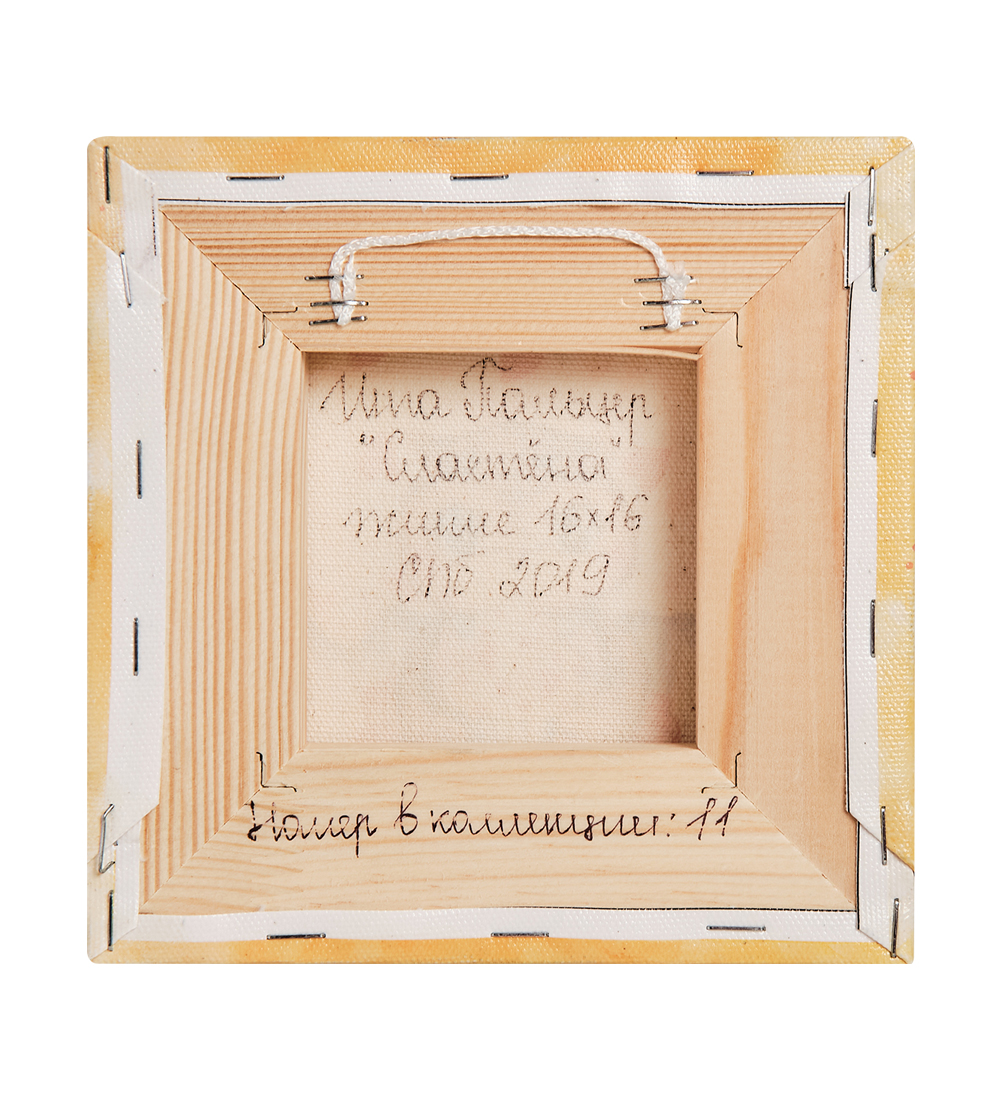 Инна Пальцер
"Сластёна"
жикле 16×16
СПб. 2019
Номер в коллекции: 11